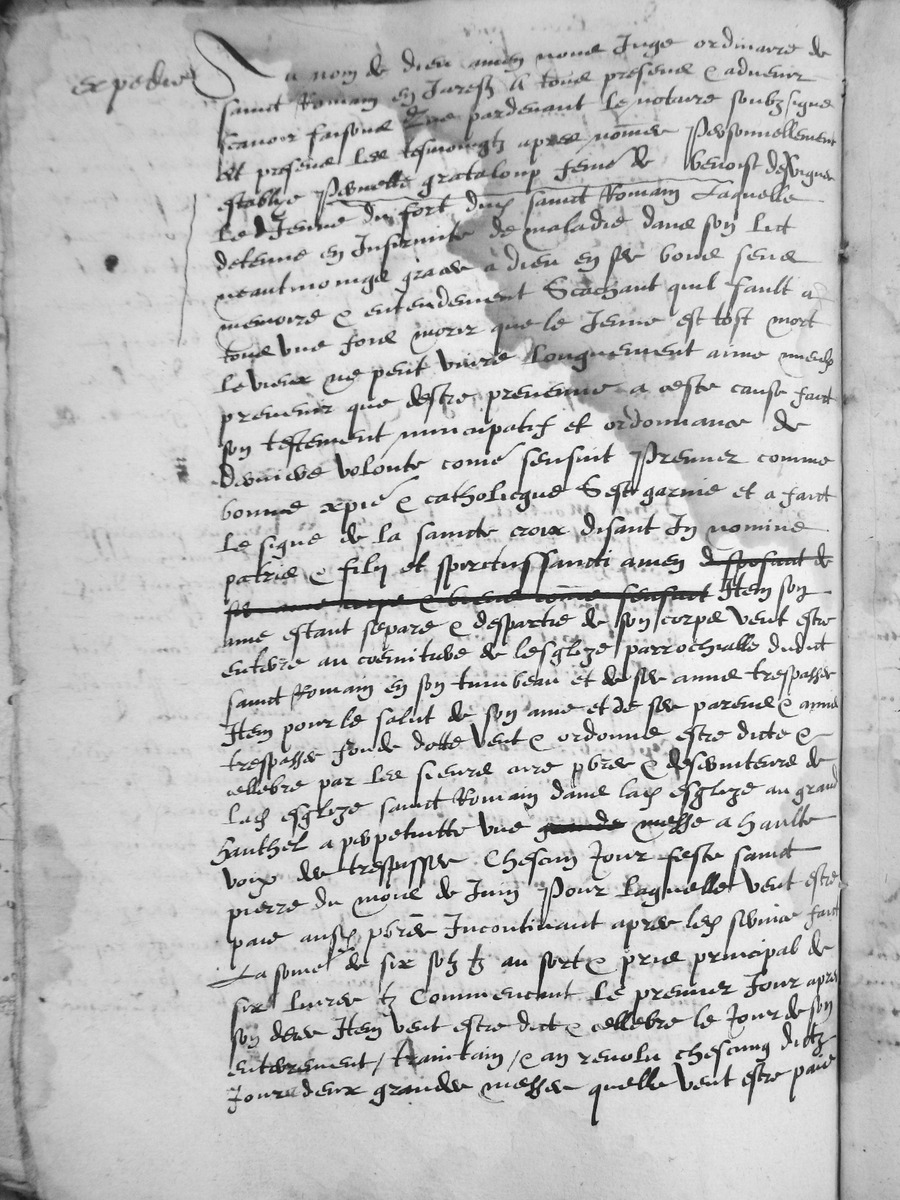 expedie
Au nom de dieu amen nous Juge ordinaire de
sainct Romain en Jarestz A tous presens & advenir
scavoir faisons que pardevant le notaire soubzsigne
Et presens les tesmoingtz apres nommes Personnellement
establye Pernette grataloup feme de benoist desvignes
le Jeune du fort dud sainct Romain Laquelle
detenue en Infirmite de maladie dans son lict
neantmoings graces a dieu en ses bons sens
memoire & entendement Scachant quil fault a
tous une fois morir que le Jeune est tost mort
le vieux ne peut vivre longuement aime mieulx
prevenir que destre prevenue a ceste cause faict
son testement nuncupatif et ordonnance de
derniere volonte come sensuit Premier comme
bonne xpie & catholicque Sest garnie et a faict
le signe de la saincte croix disant In nomine
patris & filij et spirictussancti amen disposant de
sensuit Item son
ame estant separe & despartie de son corps veut estre
enterre au cemitiere de lesglize parrochialle dudict
sainct Romain en son tumbeau et de ses amis trespasses
Item pour le salut de son ame et de ses parens & amis
trespasses fonde dotte veut & ordonne estre dicte &
cellebre par les sieurs cure pbres & desserviteurs de
lad esglize sainct Romain dans lad esglize au grand
hauthel a perpetuitte une grande messe a haulte
voix des trespasses Chescun Jour feste sainct
pierre du mois de Juin Pour laquelle veut estre
paie ausd pbres Incontinant apres led service faict
La some de six solz tz au sort & pris principal de
six livres tz Commencant le premier Jour apres
son deces Item veut estre dict & cellebre le Jour de son
enterrement / traintain / & an revolu chescung dictz
Jours deux grandes messes quelle veut estre paie